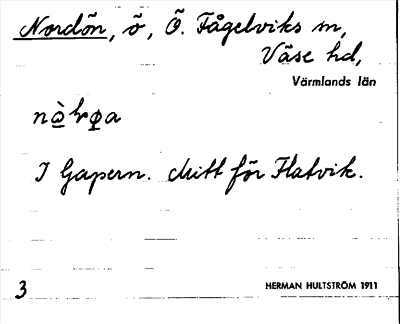 Nordön, ö, Ö. Fågelviks sn,
Väse hd,
Värmlands län
I Gapern. Mitt för Flatvik.
3
HERMAN HULTSTRÖM 1911